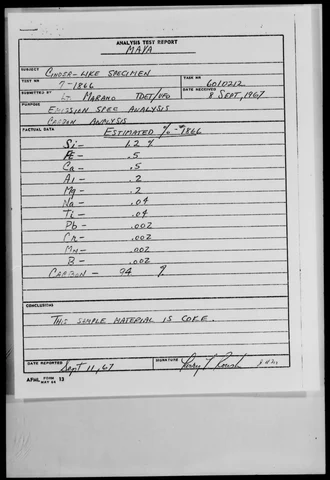 ANALYSIS TEST REPORT
MAYA
SUBJECT
CINDER-LIKE SPECIMEN
TEST NO TASK NO
7-1866 6010212
SUBMITTED BY DATE RECEIVED
LT. MARANO TDET/UFO 8 SEPT, 1967
PURPOSE
EMISSION SPEC ANALYSIS
CARBON ANALYSIS
FACTUAL DATA
ESTIMATED % - 7-1866
Si - 1.2 %
Fe - .5
Ca - .5
Al - .2
Mg - .2
Na - .04
Ti - .04
Pb - .002
Cr - .002
Mn - .002
B - .002
CARBON - 94 %
CONCLUSIONS
THIS SAMPLE MATERIAL IS COKE.
DATE REPORTED SIGNATURE
Sept 11, 67
AFML FORM MAY 64 13